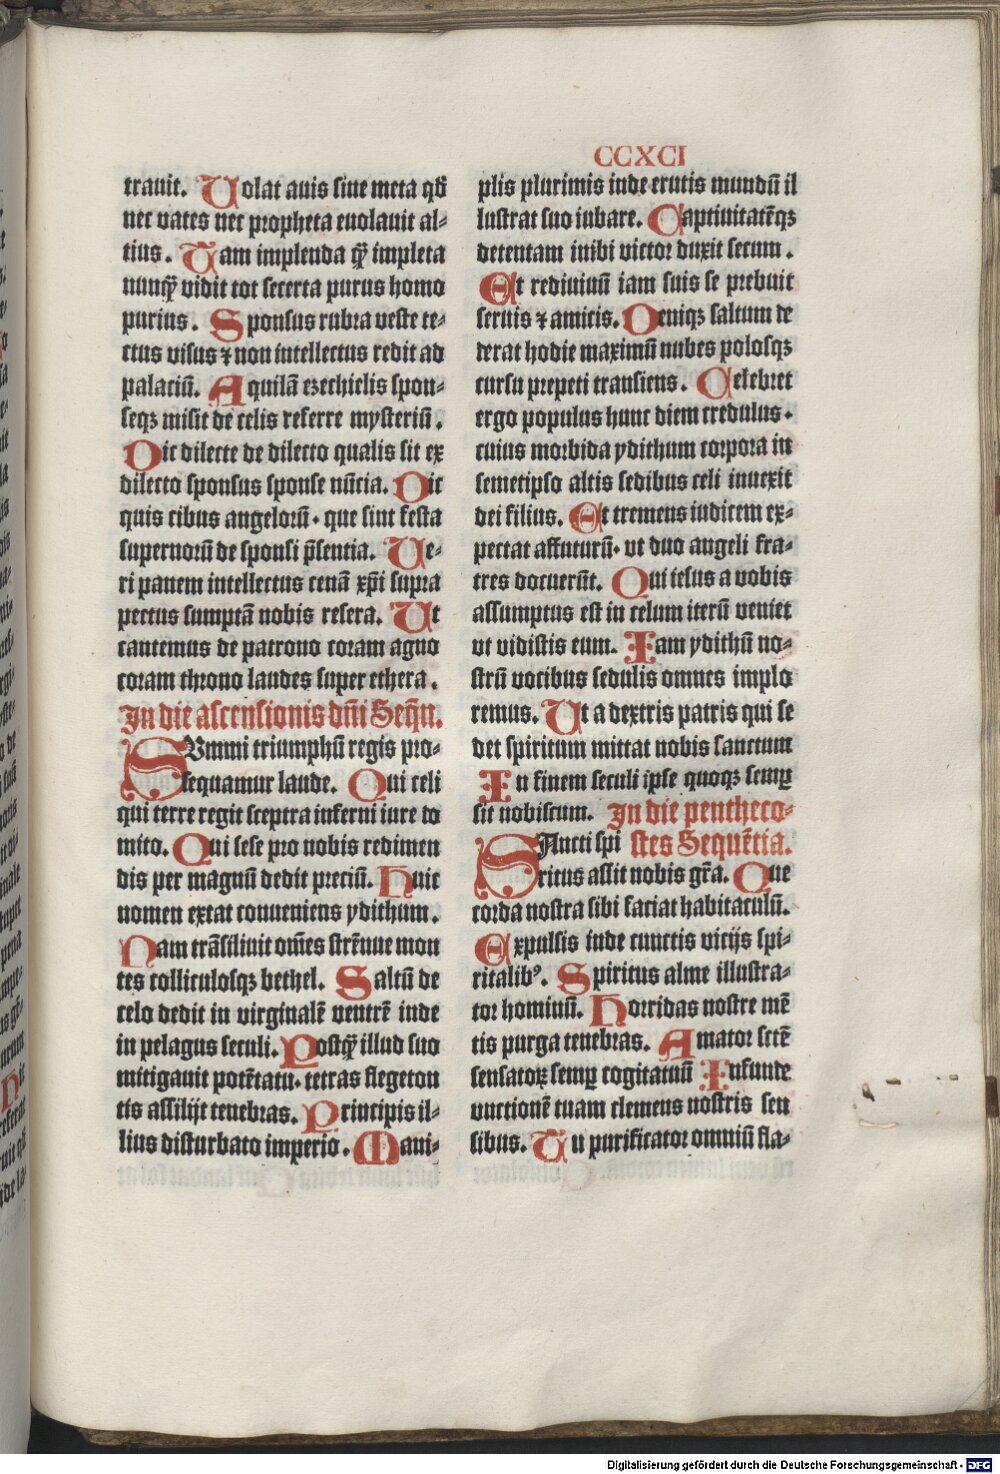 CCXCI
trauit. Uolat auis siue meta qđ
nec uates nec propheta euolauit al-
tius. Tam implenda q̄ȝ impleta
nunq̄ȝ vidit tot secreta purus homo
purius. Sponsus rubra veste te-
ctus visus ⁊ non intellectus redit ad
palaciū. Aquilā ezechielis spon-
seqȝ misit de celis referre mysteriū.
Dic dilecte de dilecto qualis sit ex
dilecto sponsus sponse nūcia. Dic
quis cibus angelorū. que sint festa
supernorū de sponsi p̄sentia. Ue-
ri panem intellectus cenā xp̄i supra
pectus sumptā nobis resera. Ut
cantemus de patrono coram agno
coram throno laudes super ethera.
In die ascensionis dñi Seq̄n.
SUmmi triumphū regis pro-
sequamur laude. Qui celi
qui terre regit sceptra inferni iure do
mito. Qui sese pro nobis redimen
dis per magnū dedit preciū. Huic
nomen extat conueniens ydithum.
Nam trāsiliuit om̄es strēnue mon
tes colliculosqȝ bethel. Saltū de
celo dedit in virginalē ventrē inde
in pelagus seculi. Postq̄ȝ illud suo
mitigauit potētatu. tetras flegeton
tis assilijt tenebras. Principis il-
lius disturbato imperio. Mani-
plis plurimis inde erutis mundū il
lustrat suo iubare. Captiuitatēqȝ
detentam inibi victor duxit secum.
Et rediuiuū iam suis se prebuit
seruis ⁊ amicis. Deniqȝ saltum de
derat hodie maximū nubes polosqȝ
cursu prepeti transiens. Celebret
ergo populus hunc diem credulus.
cuius morbida ydithum corpora in
semetipso altis sedibus celi inuexit
dei filius. Et tremens iudicem ex-
pectat affuturū. vt duo angeli fra-
tres docuerūt. Qui iesus a vobis
assumptus est in celum iterū veniet
vt vidistis eum. Iam ydithū no-
strū vocibus sedulis omnes implo
remus. Ut a dextris patris qui se
det spiritum mittat nobis sanctum
In finem seculi ipse quoqȝ semꝑ
sit nobiscum. In die pentheco-
stes Sequētia.
SAncti spi
ritus assit nobis gr̄a. Que
corda nostra sibi faciat habitaculū.
Expulsis inde cunctis vicijs spi-
ritalibꝰ. Spiritus alme illustra-
tor hominū. Horridas nostre mē
tis purga tenebras. Amator sctē
sensatoꝝ semꝑ cogitatuū Infunde
vnctionē tuam clemens nostris sen
sibus. Tu purificator omniū fla-
Digitalisierung gefördert durch die Deutsche Forschungsgemeinschaft - DFG